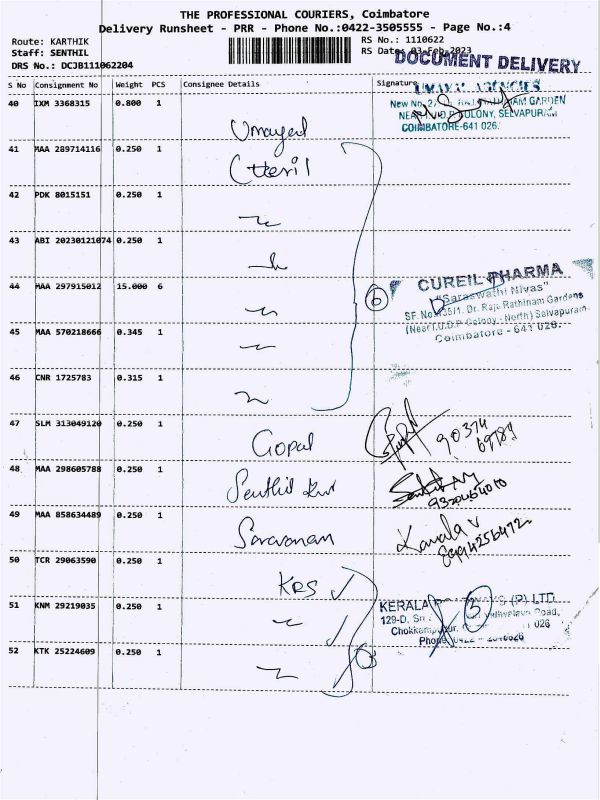 THE PROFESSIONAL COURIERS, Coimbatore
Delivery Runsheet - PRR - Phone No.:0422-3505555 - Page No.:4
Route: KARTHIK
Staff: SENTHIL
DRS No.: DCJB111062204
RS No.: 1110622
RS Date: 03-Feb-2023
DOCUMENT DELIVERY
S No Consignment No Weight PCS Consignee Details Signature
40 IXM 3368315 0.800 1
UMAYAL AGENCIES
GARDEN
COLONY, SELVAPURAM
COIMBATORE-641 026.
Umayal
41 MAA 289714116 0.250 1
42 PDK 8015151 0.250 1
43 ABI 20230121074 0.250 1
44 MAA 297915012 15.000 6
6
CUREIL PHARMA
"Saraswathi Nivas"
Dr. Raju Rathinam Gardens
(Near T.U.D.P Colony - North) Selvapuram
Coimbatore - 641 026.
45 MAA 570218666 0.345 1
46 CNR 1725783 0.315 1
47 SLM 313049120 0.250 1
Gopal
48 MAA 298605788 0.250 1
Senthil Kur
49 MAA 858634489 0.250 1
Saravanan
Kamala v
8994256472
50 TCR 29063590 0.250 1
KRS
51 KNM 29219035 0.250 1
KERALA (P) LTD
129-D, Road,
026
3
52 KTK 25224609 0.250 1